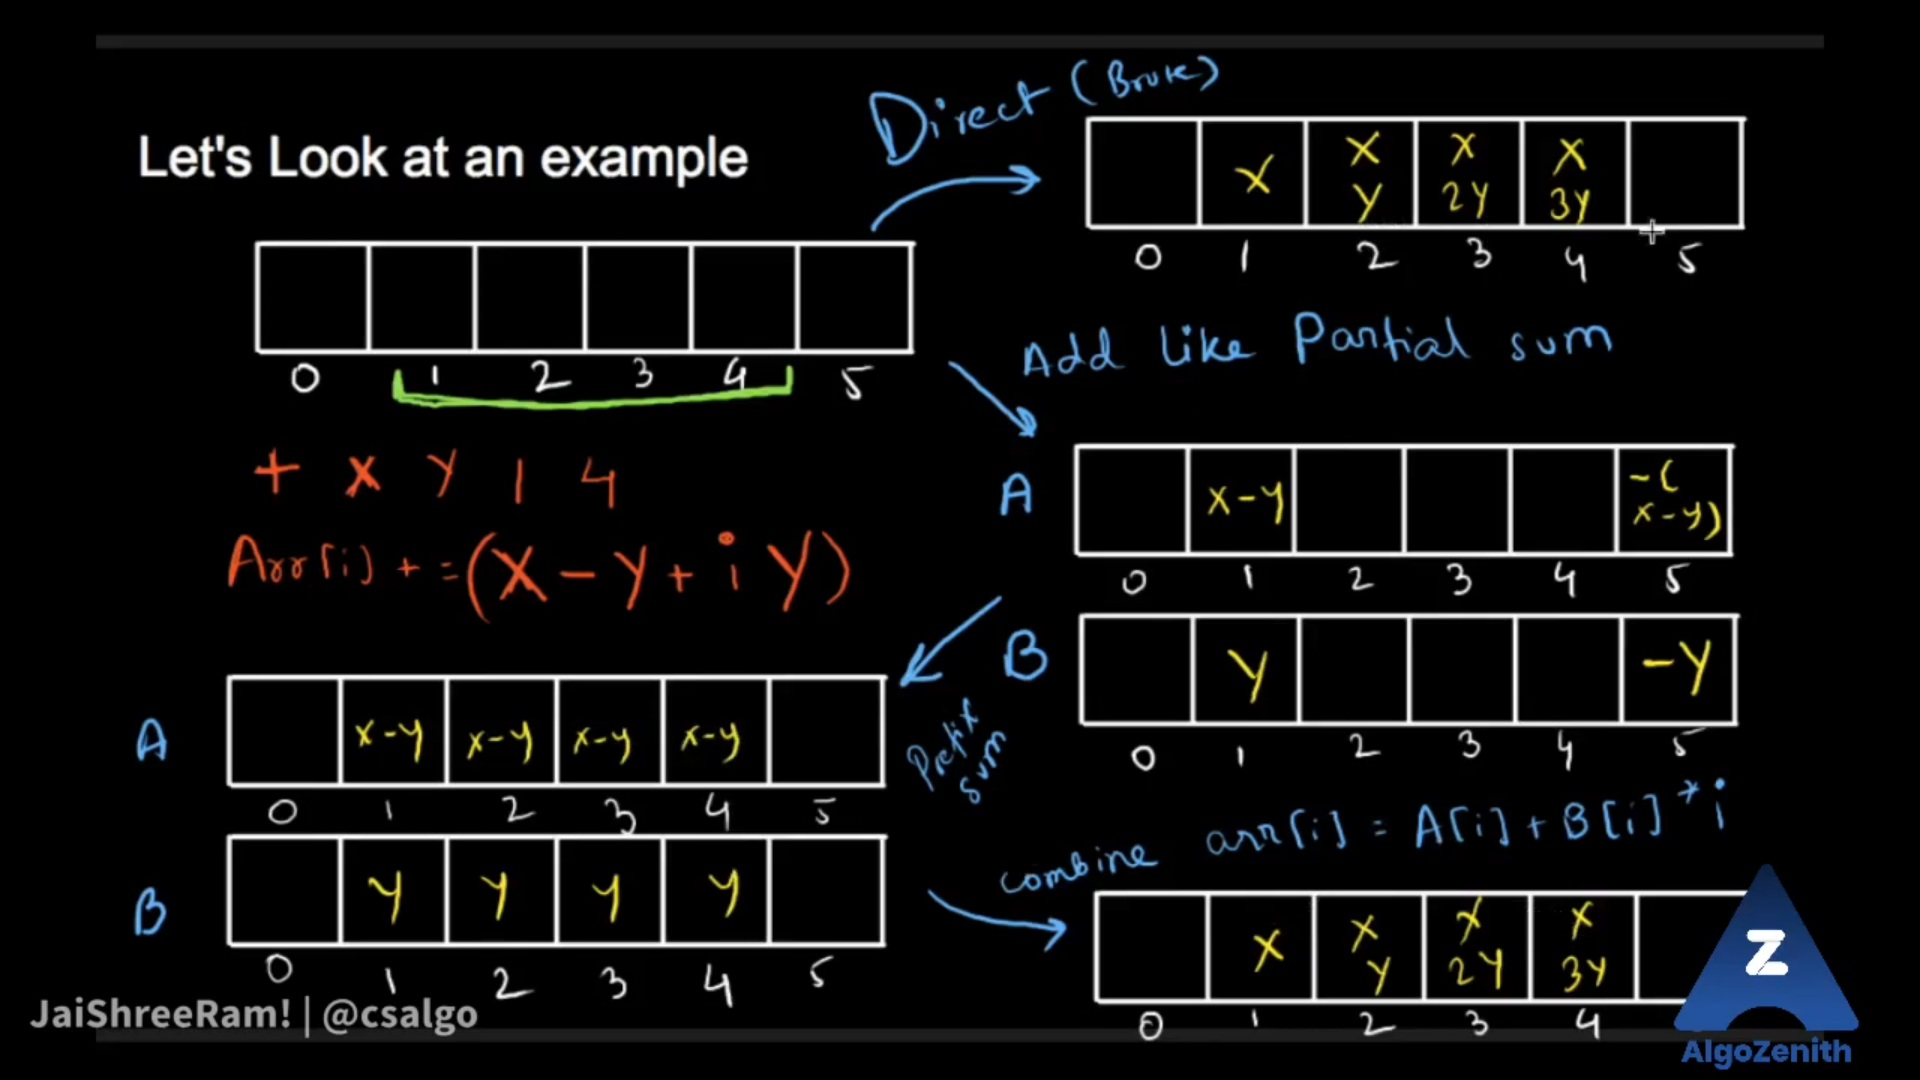 Let's Look at an example
0 1 2 3 4 5
+ X Y 1 4
Arr[i] + = (X - Y + i Y)
Direct (Brute)
X X Y X 2Y X 3Y
0 1 2 3 4 5
Add like Partial sum
A
x-y -(x-y)
0 1 2 3 4 5
B
Y -Y
0 1 2 3 4 5
Prefix sum
A
x-y x-y x-y x-y
0 1 2 3 4 5
B
y y y y
0 1 2 3 4 5
combine arr[i] = A[i] + B[i] * i
X X Y X 2Y X 3Y
0 1 2 3 4
JaiShreeRam! | @csalgo
Z
AlgoZenith